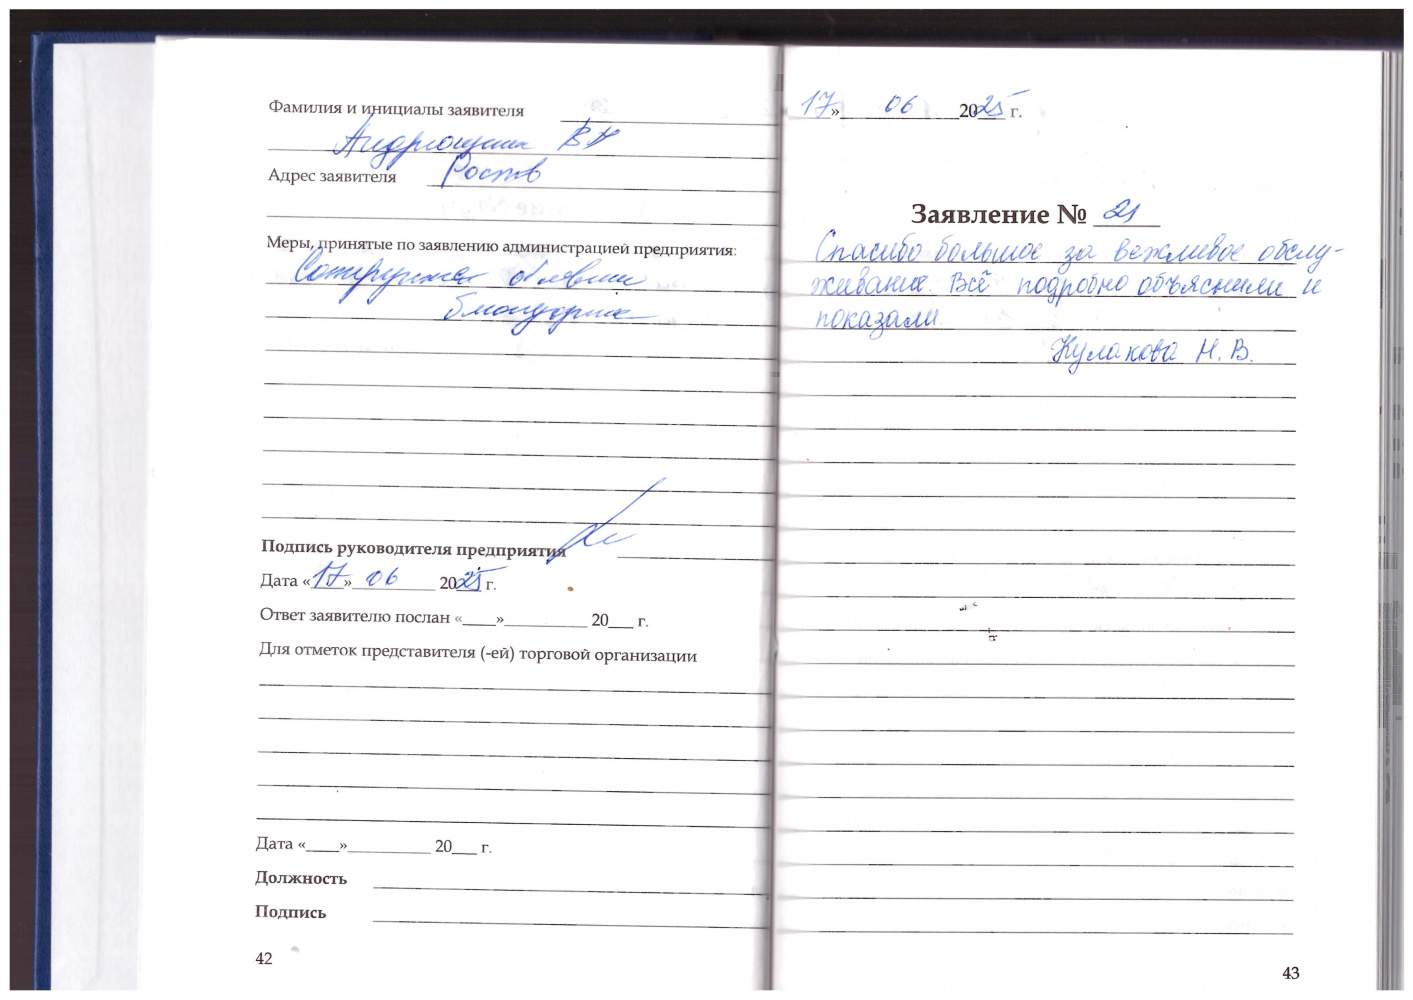 Фамилия и инициалы заявителя
Андрющенко В
Адрес заявителя Ростов
Меры, принятые по заявлению администрацией предприятия:
Сотруднику объявили
благодарность
Подпись руководителя предприятия
Дата «17» 06 2025 г.
Ответ заявителю послан «____»__________ 20___ г.
Для отметок представителя (-ей) торговой организации
Дата «____»__________ 20___ г.
Должность
Подпись
42
17» 06 2025 г.
Заявление № 21
Спасибо большое за вежливое обслу-
живание. Всё подробно объяснили и
показали
Кулакова Н. В.
43